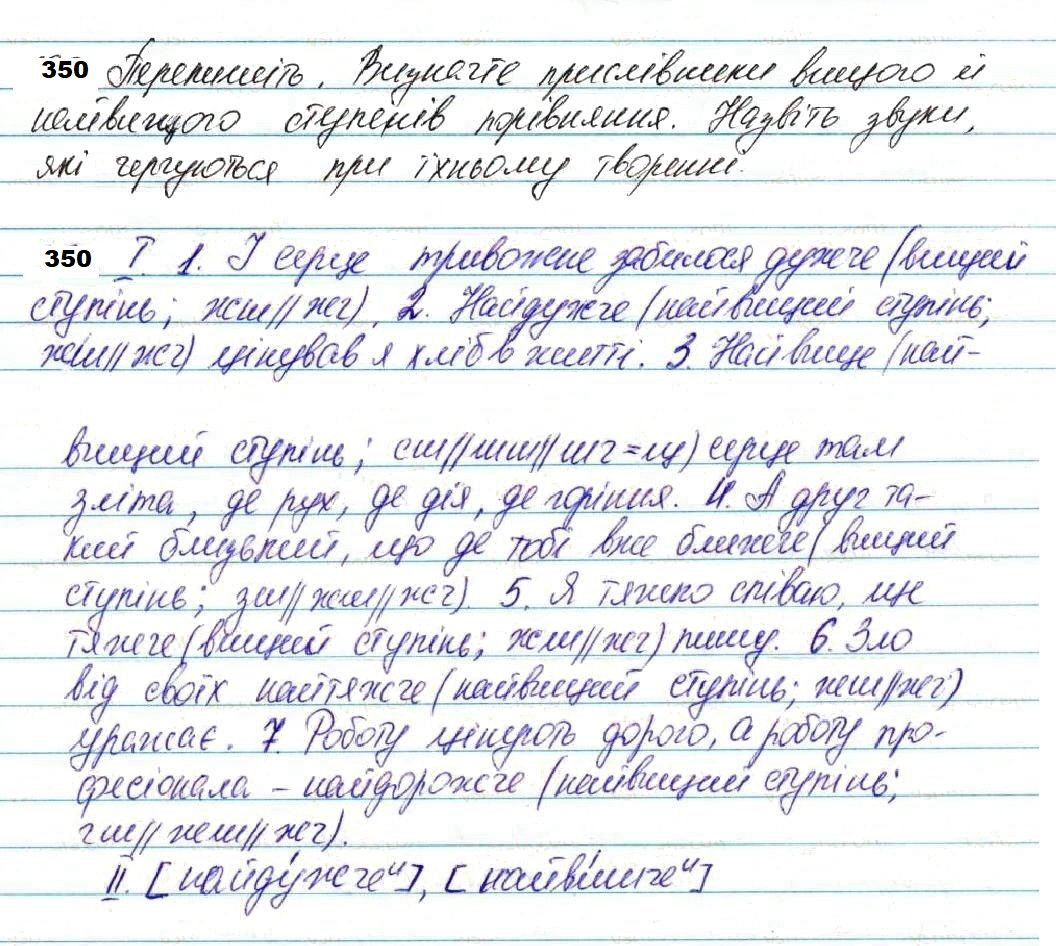 350 Перепишіть. Визначте прислівники вищого й
найвищого ступенів порівняння. Назвіть звуки,
які чергуються при їхньому творенні.
350 І. 1. І серце тривожне забилося дужче (вищий
ступінь; жш//жч). 2. Найдужче (найвищий ступінь;
жш//жч) цінував я хліб в житті. 3. Найвище (най-
вищий ступінь; сш//шш//шч=щ) серце там
зліта, де рух, де дія, де горіння. 4. А друг та-
кий близький, що де тобі вже ближче (вищий
ступінь; зш//жш//жч). 5. Я тяжко співаю, ще
тяжче (вищий ступінь; жш//жч) пишу. 6. Зло
від своїх найтяжче (найвищий ступінь; жш//жч)
уражає. 7. Роботу цінують дорого, а роботу про-
фесіонала – найдорожче (найвищий ступінь;
гш//жш//жч).
ІІ. [найду́жчеи], [найви́шчеи]